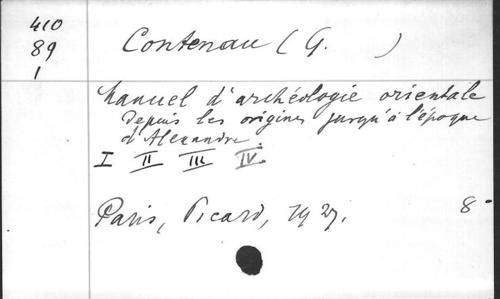 410
89
1
Contenau (G. )
Manuel d'archéologie orientale
depuis les origines jusqu'à l'époque
d'Alexandre.
I II III IV.
Paris, Picard, 1927. 8°